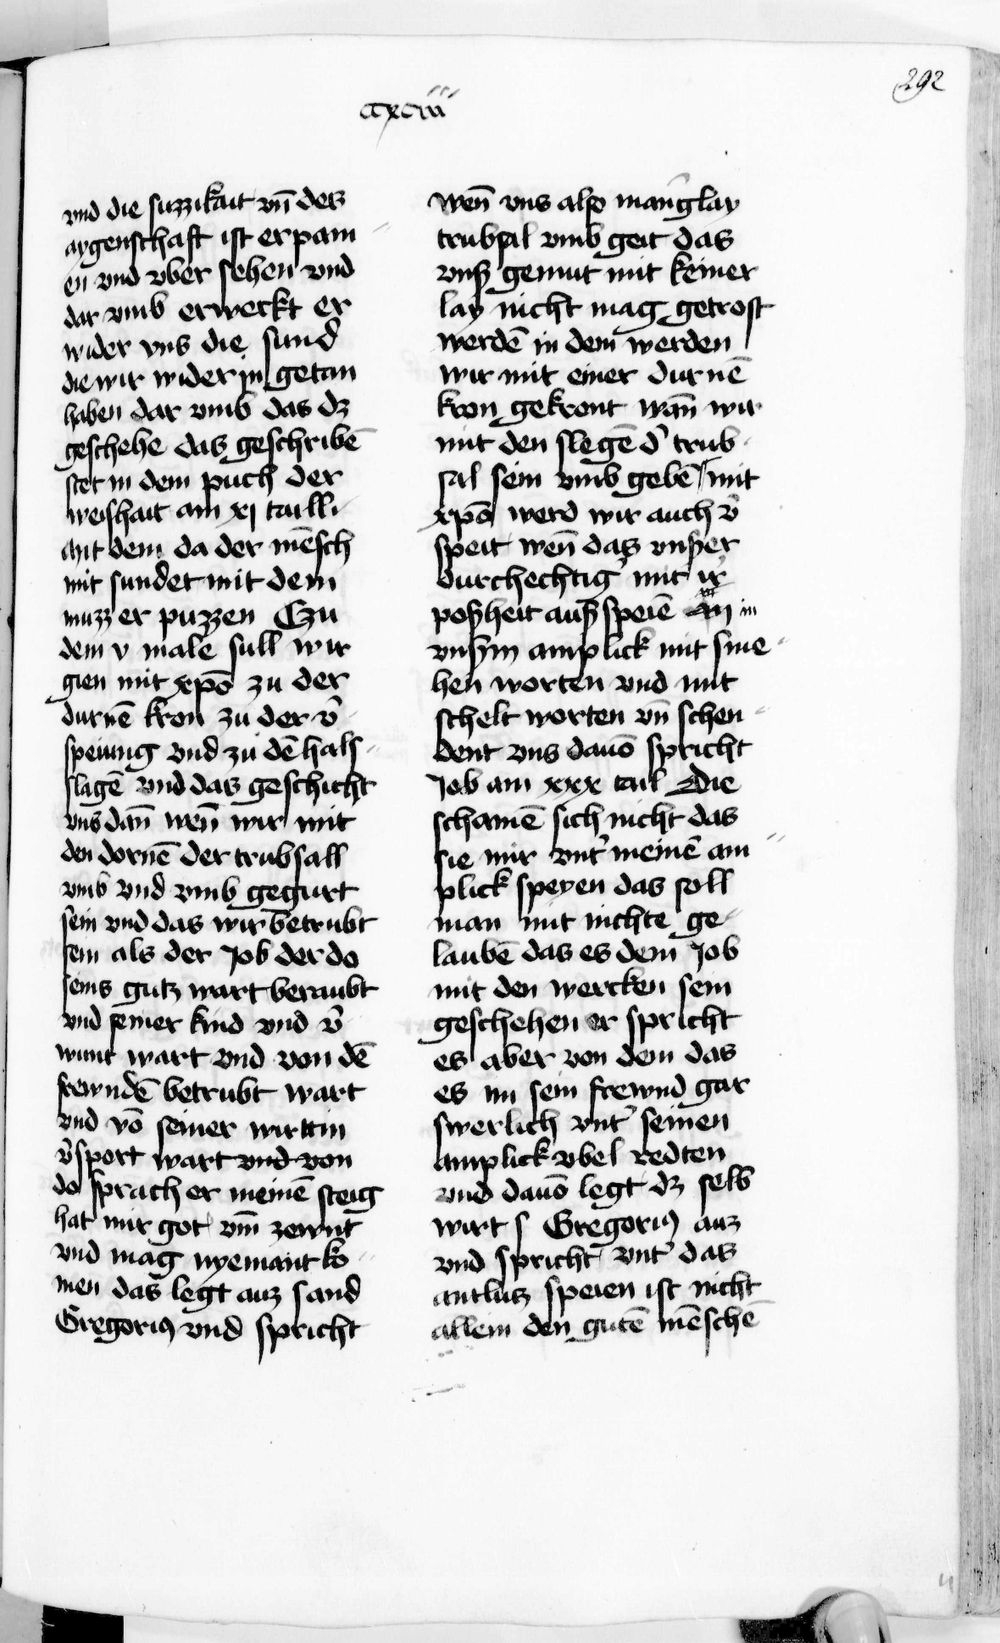 292
ccxciii
vnd die suzzikait vn̄ der
aygenschaft ist erparm
en vnd vber sehen vnd
dar vmb erweckt er
wider vns die sund
die wir wider in getan
haben dar vmb das dz
geschehe das geschribē
stet in dem puch der
weishait am xj taill
mit dem da der mēsch
mit sundet mit dem
muzz er puzzen Czu
dem v male sull wir
gien mit xp̄o zu der
durnē kron zu der v̄
speiung vnd zu dē hals
slagē vnd das geschicht
vns dan̄ wen̄ wir mit
den dornē der trubsall
vmb vnd vmb gegurt
sein vnd das wir betrubt
sein als der Job der do
seins gutz wart beraubt
vnd seiner kind vnd v̄
wunt wart vnd von dē
frewndē betrubt wart
vnd vō seiner wirttin
v̄sport wart vnd von
do sprach er meinē steig
hat mir got vm̄ zewnt
vnd mag nyemant ko
men das legt auz sand
Gregorius vnd spricht
wen̄ vns also man̄glay
trubsal vmb geit das
vnß gemut mit keiner
lay nicht mag getrost
werdē in dem werden
wir mit einer durnē
kron gekront wan̄ wir
mit den slegē d' trub
sal sein vmb gebē mit
xp̄o werd wir auch v̄
speit wen̄ das vnßer
durchechtig' mit ir'
poßheit auß speiē in
vnßm amplick mit sme
hen worten vnd mit
schelt worten vn̄ schen
dent vns dauō spricht
Job am xxx tail Die
schamē sich nicht das
sie mir vnt' meinē am
plick speyen das soll
man mit nichte ge
laubē das es dem Job
mit den wercken sein
geschehen er spricht
es aber von dem das
es im sein frewnd gar
swerlich vnt' seinen
amplick vbel redten
vnd dauō legt dz selb
wirt s Gregorius auz
vnd spricht vnt' das
antlutz speien ist nicht
allein den gutē mēschē